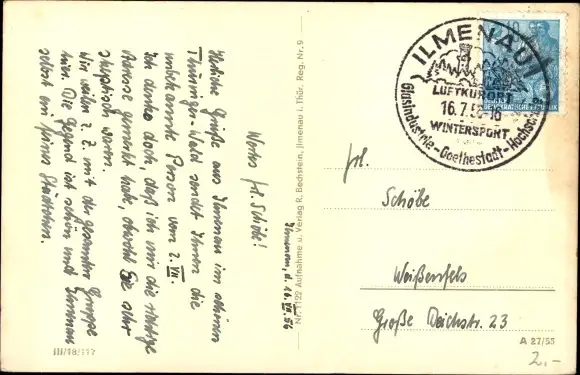 Ilmenau, d. 16. VII. 56
Wertes Frl. Schöbe!
Herzliche Grüße aus Ilmenau im schönen
Thüringer-Wald sendet Ihnen die
unbekannte Person vom 2. VII.
Ich denke doch, daß ich mir die richtige
Adresse gemerkt habe, obwohl Sie aber
skeptisch waren.
Wir weilen z. Z. mit der gesamten Gruppe
hier. Die Gegend ist schön und Ilmenau
selbst ein feines Städtchen.
III/18/117
Nr. 1122 Aufnahme u. Verlag R. Bechstein, Ilmenau i. Thür. Reg. Nr. 9
ILMENAU
LUFTKURORT
16.7.56-16
WINTERSPORT
Glasindustrie-Goethestadt-Hochschule
DEUTSCHE DEMOKRATISCHE REPUBLIK
Frl.
Schöbe
Weißenfels
Große Deichstr. 23
A 27/55
2.-